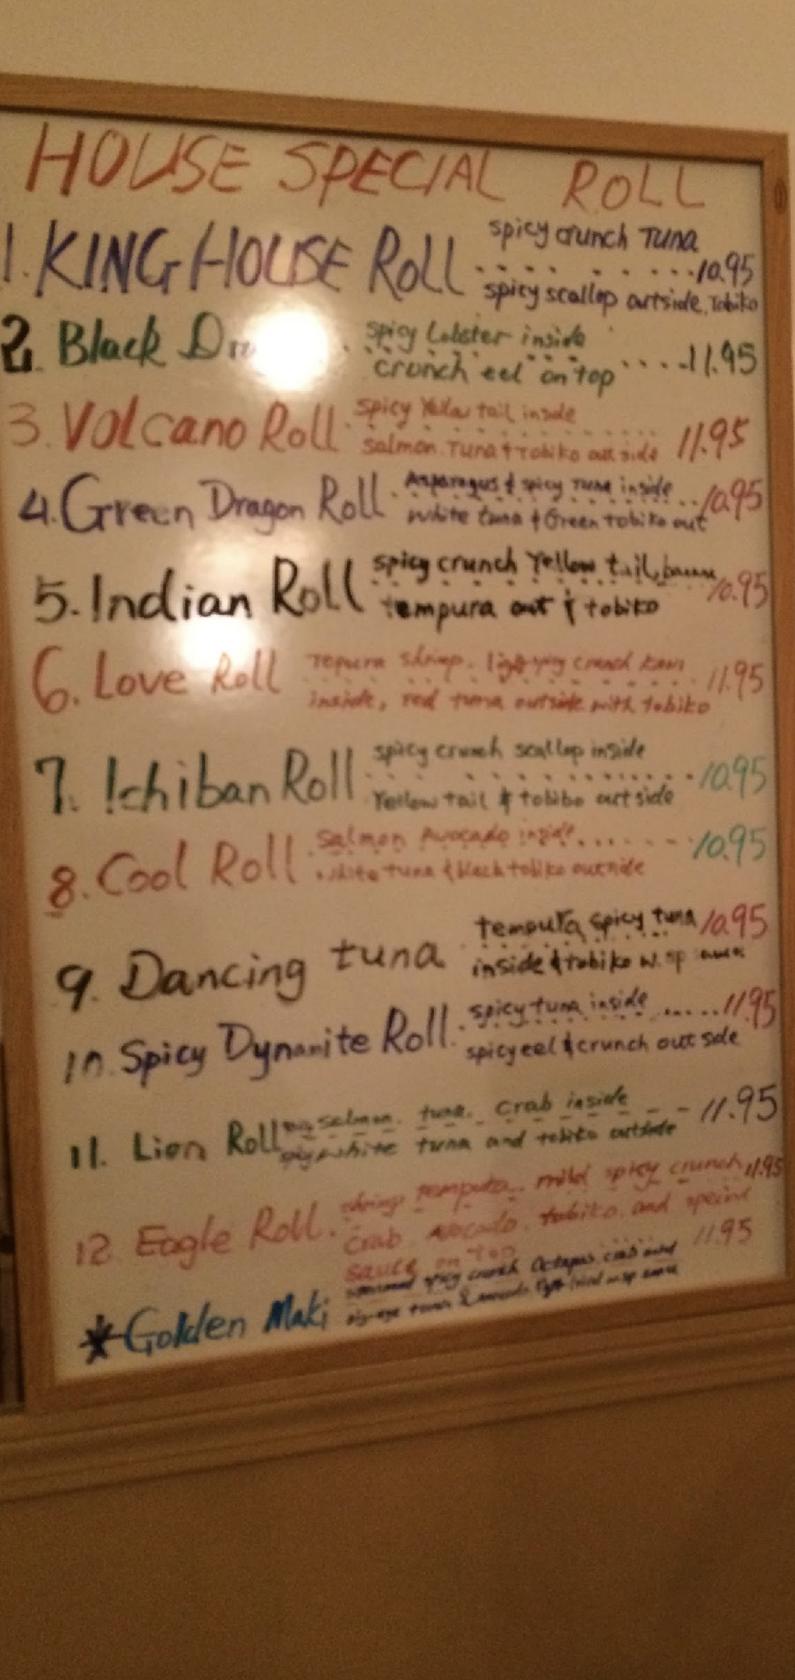 HOUSE SPECIAL ROLL
1. KING HOUSE Roll spicy crunch Tuna 10.95
spicy scallop outside, Tobiko
2. Black spicy Lobster inside 11.95
crunch eel on top
3. Volcano Roll spicy Yellow tail inside 11.95
salmon. Tuna & Tobiko out side
4. Green Dragon Roll Asparagus & spicy Tuna inside 10.95
white tuna & Green Tobiko out
5. Indian Roll spicy crunch Yellow tail, 10.95
tempura out & tobiko
6. Love Roll shrimp. crunch 11.95
inside, red tuna outside with tobiko
7. Ichiban Roll spicy crunch scallop inside 10.95
Yellow tail & tobiko out side
8. Cool Roll Salmon Avocado inside 10.95
white tuna & black tobiko outside
9. Dancing tuna tempura spicy tuna 10.95
inside & tobiko w. sp
10. Spicy Dynamite Roll spicy tuna inside 11.95
spicy eel & crunch out side
11. Lion Roll salmon. tuna. crab inside 11.95
white tuna and tobiko outside
12 Eagle Roll shrimp tempura mild spicy crunch 11.95
crab Avocado. tobiko. and special
sauce on top 11.95
* Golden Maki spicy crunch Octopus crab and